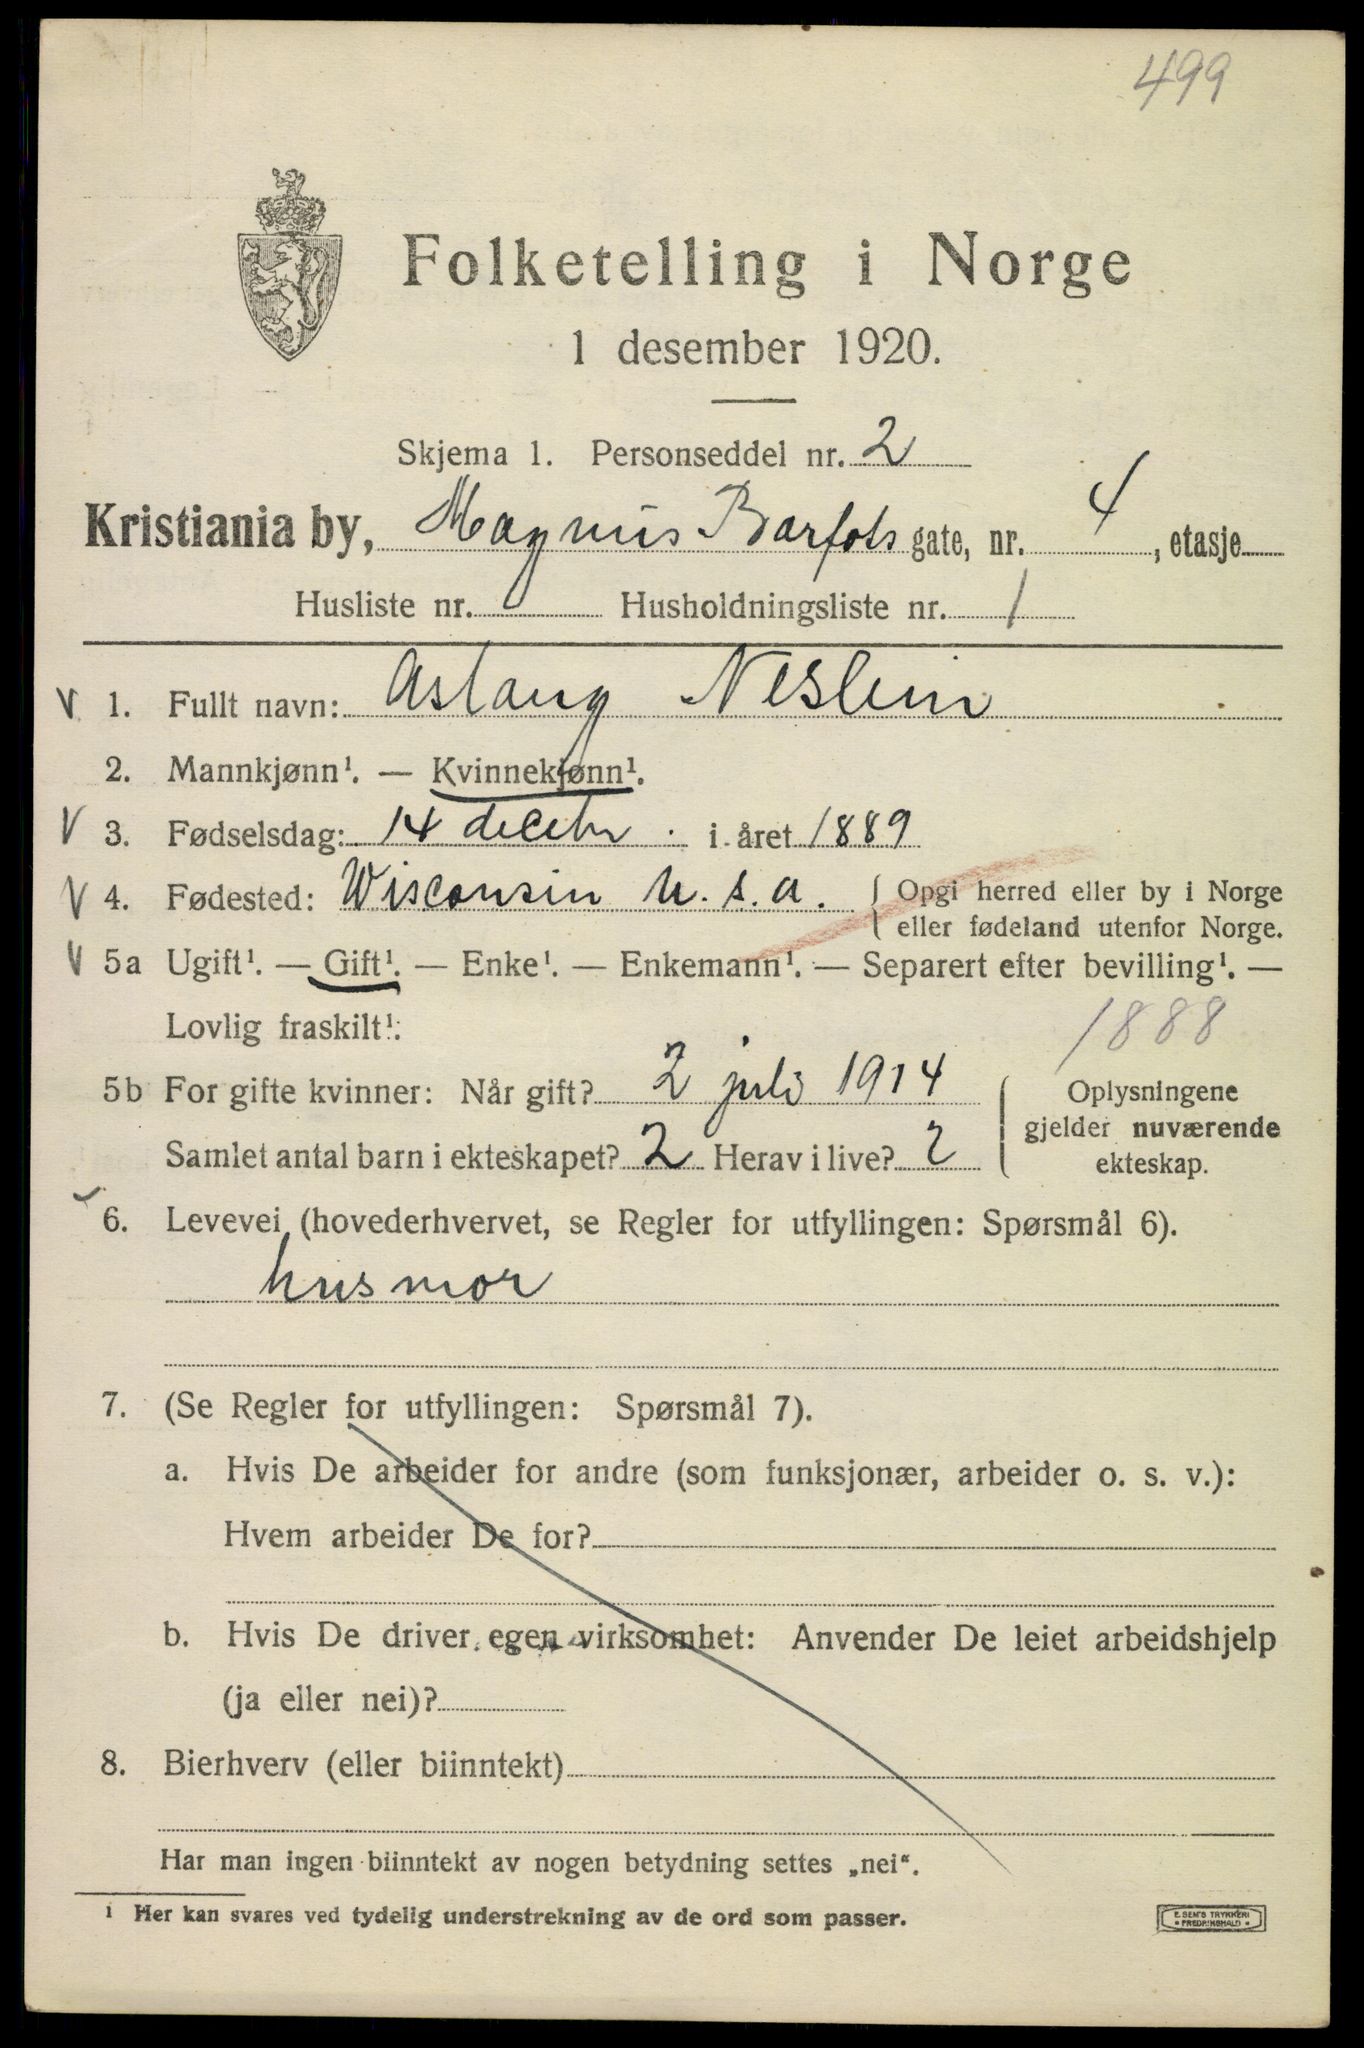 499
Folketelling i Norge
1 desember 1920.
Skjema 1. Personseddel nr. 2
Kristiania by, Magnus Barfots gate, nr. 4, etasje
Husliste nr. Husholdningsliste nr. 1
V 1. Fullt navn: Aslaug Neslein
2. Mannkjønn¹. — Kvinnekjønn¹.
V 3. Fødselsdag: 14 decebr. i året 1889
V 4. Fødested: Wisconsin U.S.A. { Opgi herred eller by i Norge
eller fødeland utenfor Norge.
V 5a Ugift¹. — Gift¹. — Enke¹. — Enkemann¹. — Separert efter bevilling¹. —
Lovlig fraskilt¹.
1888
5b For gifte kvinner: Når gift? 2 juli 1914
Samlet antal barn i ekteskapet? 2 Herav i live? 2
Oplysningene
gjelder nuværende
ekteskap.
6. Levevei (hovederhvervet, se Regler for utfyllingen: Spørsmål 6).
husmor
7. (Se Regler for utfyllingen: Spørsmål 7).
a. Hvis De arbeider for andre (som funksjonær, arbeider o. s. v.):
Hvem arbeider De for?
b. Hvis De driver egen virksomhet: Anvender De leiet arbeidshjelp
(ja eller nei)?
8. Bierhverv (eller biinntekt)
Har man ingen biinntekt av nogen betydning settes „nei“.
¹ Her kan svares ved tydelig understrekning av de ord som passer.
E. SEM'S TRYKKERI
• FREDRIKSHALD •